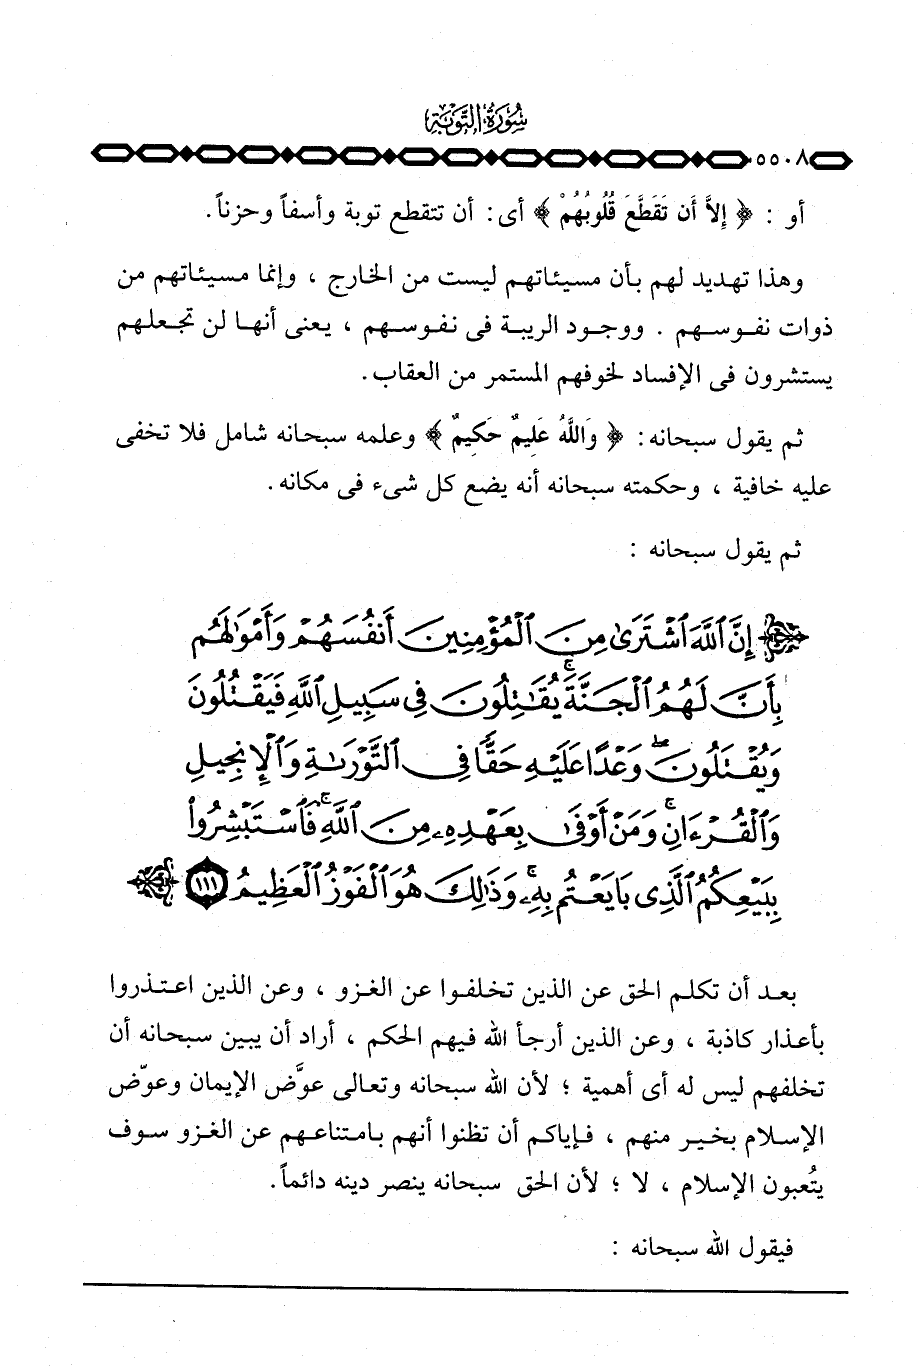 سُورَةُ التَّوْبَة
٥٥٠٨
أو : ﴿ إِلاَّ أَن تَقَطَّعَ قُلُوبُهُمْ ﴾ أى: أن تتقطع توبة وأسفاً وحزناً.
وهذا تهديد لهم بأن مسيئاتهم ليست من الخارج ، وإنما مسيئاتهم من
ذوات نفوسهم . ووجود الريبة فى نفوسهم ، يعنى أنها لن تجعلهم
يستشرون فى الإفساد لخوفهم المستمر من العقاب.
ثم يقول سبحانه: ﴿ وَاللَّهُ عَلِيمٌ حَكِيمٌ ﴾ وعلمه سبحانه شامل فلا تخفى
عليه خافية ، وحكمته سبحانه أنه يضع كل شىء فى مكانه.
ثم يقول سبحانه :
إِنَّ ٱللَّهَ ٱشْتَرَىٰ مِنَ ٱلْمُؤْمِنِينَ أَنفُسَهُمْ وَأَمْوَٰلَهُم
بِأَنَّ لَهُمُ ٱلْجَنَّةَۚ يُقَٰتِلُونَ فِى سَبِيلِ ٱللَّهِ فَيَقْتُلُونَ
وَيُقْتَلُونَۖ وَعْدًا عَلَيْهِ حَقًّا فِى ٱلتَّوْرَىٰةِ وَٱلْإِنجِيلِ
وَٱلْقُرْءَانِۚ وَمَنْ أَوْفَىٰ بِعَهْدِهِۦ مِنَ ٱللَّهِۚ فَٱسْتَبْشِرُوا۟
بِبَيْعِكُمُ ٱلَّذِى بَايَعْتُم بِهِۦۚ وَذَٰلِكَ هُوَ ٱلْفَوْزُ ٱلْعَظِيمُ ١١١
بعد أن تكلم الحق عن الذين تخلفوا عن الغزو ، وعن الذين اعتذروا
بأعذار كاذبة ، وعن الذين أرجأ الله فيهم الحكم ، أراد أن يبين سبحانه أن
تخلفهم ليس له أى أهمية ؛ لأن الله سبحانه وتعالى عوَّض الإيمان وعوّض
الإسلام بخير منهم ، فإياكم أن تظنوا أنهم بامتناعهم عن الغزو سوف
يتُعبون الإسلام ، لا ؛ لأن الحق سبحانه ينصر دينه دائماً.
فيقول الله سبحانه :